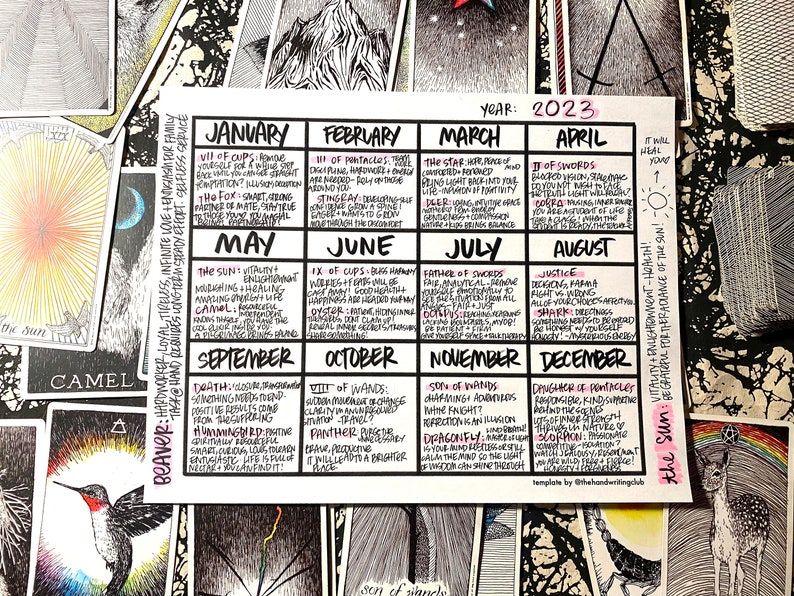 YEAR: 2023
JANUARY
VII OF CUPS: REMOVE
YOURSELF FOR A WHILE STEP
BACK UNTIL YOU CAN SEE STRAIGHT
TEMPTATION? ILLUSION DECEPTION
THE FOX: SMART, STRONG
PARTNER OR MATE STAY TRUE
TO THOSE YOU
FEBRUARY
III OF PENTACLES: TEAM WORK
DISCIPLINE, HARDWORK + ENERGY
ARE NEEDED - RELY ON THOSE
AROUND YOU.
STINGRAY: DEVELOPING SELF
CONFIDENCE GROW A SPINE
EAGER + WANTS TO GROW
MOVE THROUGH THE DISCOMFORT
MARCH
THE STAR: HOPE, PEACE OF MIND
COMFORTED + RENEWED
BRING LIGHT BACK INTO YOUR
LIFE - INFUSION OF POSITIVITY
DEER: LOVING, INTUITIVE SPACE
FEM ENERGY
GENTLENESS + COMPASSION
NATURE + KIDS BRINGS BALANCE
APRIL
II OF SWORDS
BLOCKED VISION, STALEMATE
DO YOU NOT WISH TO FACE
THE TRUTH? LIGHT WILL
COBRA: INNER GURU
YOU ARE A STUDENT OF LIFE
TAKE A CLASS! WHEN THE
STUDENT IS READY, THE TEACHER
MAY
THE SUN: VITALITY +
ENLIGHTENMENT
NOURISHING + HEALING
AMAZING ENERGY + LIFE
CAMEL: RESOURCEFUL
INDEPENDENT
COOL CLICK INSIDE YOU
A PILGRIMAGE BRINGS BALANCE
JUNE
IX OF CUPS: BLISS HARMONY
WORRIES + FEARS WILL BE
CAST AWAY! GOOD HEALTH +
HAPPINESS ARE HEADED YOUR WAY
OYSTER: PATIENT, HIDING INNER
TREASURES DON'T CLAM UP
REVEAL INNER SECRETS/TREASURES
SHARE SOMETHING!
JULY
FATHER OF SWORDS
FAIR, ANALYTICAL - REMOVE
YOURSELF EMOTIONALLY TO
SEE THE SITUATION FROM ALL
FAIR + JUST
OCTOPUS:
BE PATIENT + FIRM
GIVE YOURSELF SPACE + TALK THERAPY
AUGUST
JUSTICE
DECISIONS, KARMA
RIGHT VS WRONG
ALL OF YOUR CHOICES AFFECT YOU.
SHARK: DIRECTNESS
SOMETHING NEEDS TO BE DEVOURED
BE HONEST W/ YOURSELF
HONESTY! - MYSTERIOUS ENERGY
SEPTEMBER
DEATH: CLOSURE, TRANSFORMATION
SOMETHING NEEDS TO END.
POSITIVE RESULTS COME
FROM THE SUFFERING
HUMMINGBIRD: POSITIVE
SPIRITUALLY RESOURCEFUL
SMART, CURIOUS, LOVES TO LEARN
ENTHUSIASTIC LIFE IS FULL OF
NECTAR + YOU CAN FIND IT!
OCTOBER
VIII OF WANDS:
SUDDEN MOVEMENT OR CHANGE
CLARITY IN AN UNRESOLVED
SITUATION - TRAVEL?
PANTHER: PURGE THE
UNNECESSARY
BRAVE, PRODUCTIVE
IT WILL LEAD TO A BRIGHTER
PLACE.
NOVEMBER
SON OF WANDS
CHARMING! ADVENTUROUS
WHITE KNIGHT?
PERFECTION IS AN ILLUSION
DRAGONFLY: MASTER OF LIGHT
IS YOUR MIND RESTLESS OR STILL
CALM THE MIND SO THE LIGHT
OF WISDOM CAN SHINE THROUGH
DECEMBER
DAUGHTER OF PENTACLES
RESPONSIBLE, KIND, SUPPORTIVE
BEHIND THE SCENES
LOTS OF INNER STRENGTH
THRIVES IN NATURE
SCORPION: PASSIONATE
COMPETITIVE - ISOLATION?
WATCH JEALOUSY, RESENTMENT
YOU ARE WILD FREE + FIERCE!
HONESTY + FORGIVENESS
template by @thehandwritingclub
BEAVER: HARDWORKER, LOYAL, TIRELESS, INFINITE LOVE + ENTHUSIASM FOR FAMILY
TASK @ HAND REQUIRES LONG-TERM STEADY EFFORT. SELFLESS SERVICE
the SUN: VITALITY + ENLIGHTENMENT - HEALTH!
BE GRATEFUL FOR THE RADIANCE OF THE SUN!
IT WILL
HEAL YOU
XIX
the sun
CAMEL
son of wands